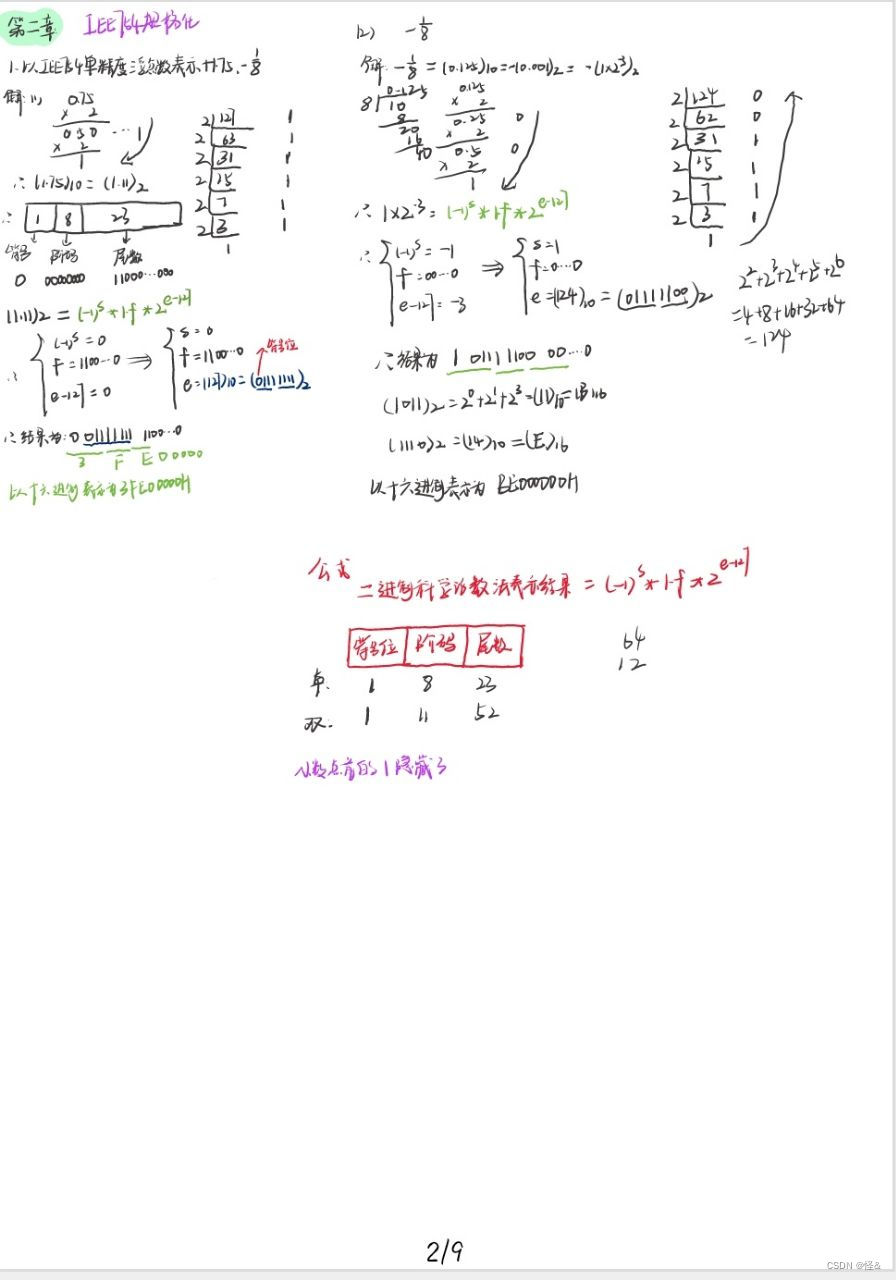 第二章 IEEE754规格化
1. 以IEEE754单精度浮点数表示+1.75、-1/8
解: (1) 0.75
× 2
0.50 … 1
× 2
1
∴ (1.75)10 = (1.11)2
∴ 1 8 23
符号 阶码 尾数
0 00000000 11000…000
2 127 1
2 63 1
2 31 1
2 15 1
2 7 1
2 3 1
1
(1.11)2 = (-1)^s * 1.f * 2^(e-127)
∴ { (-1)^s = 0
f = 1100…0
e-127 = 0
⇒ { s = 0
f = 1100…0
e = (127)10 = (01111111)2
符号位
∴ 结果为: 0 01111111 1100…0
3 F E 0 0 0 0 0
以十六进制表示为3FE00000H
(2) -1/8
解: -1/8 = (0.125)10 = -(0.001)2 = -(1×2^-3)2
0.125
8 10
8
20
16
40
0.125
× 2
0.25 0
× 2
0.5 0
× 2
1
2 124 0
2 62 0
2 31 1
2 15 1
2 7 1
2 3 1
1
∴ 1×2^-3 = (-1)^s * 1.f * 2^(e-127)
∴ { (-1)^s = -1
f = 00…0
e-127 = -3
⇒ { s = 1
f = 0…0
e = (124)10 = (01111100)2
2^2+2^3+2^4+2^5+2^6
= 4+8+16+32+64
= 124
∴ 结果为 1 01111100 00…0
(1011)2 = 2^0+2^1+2^3 = (11)10 = (B)16
(1110)2 = (14)10 = (E)16
以十六进制表示为 BE000000H
公式
二进制科学计数法表示结果 = (-1)^s * 1.f * 2^(e-127)
符号位 阶码 尾数
单. 1 8 23
双. 1 11 52
64
12
小数点前的1隐藏了
2/9
CSDN @怪&